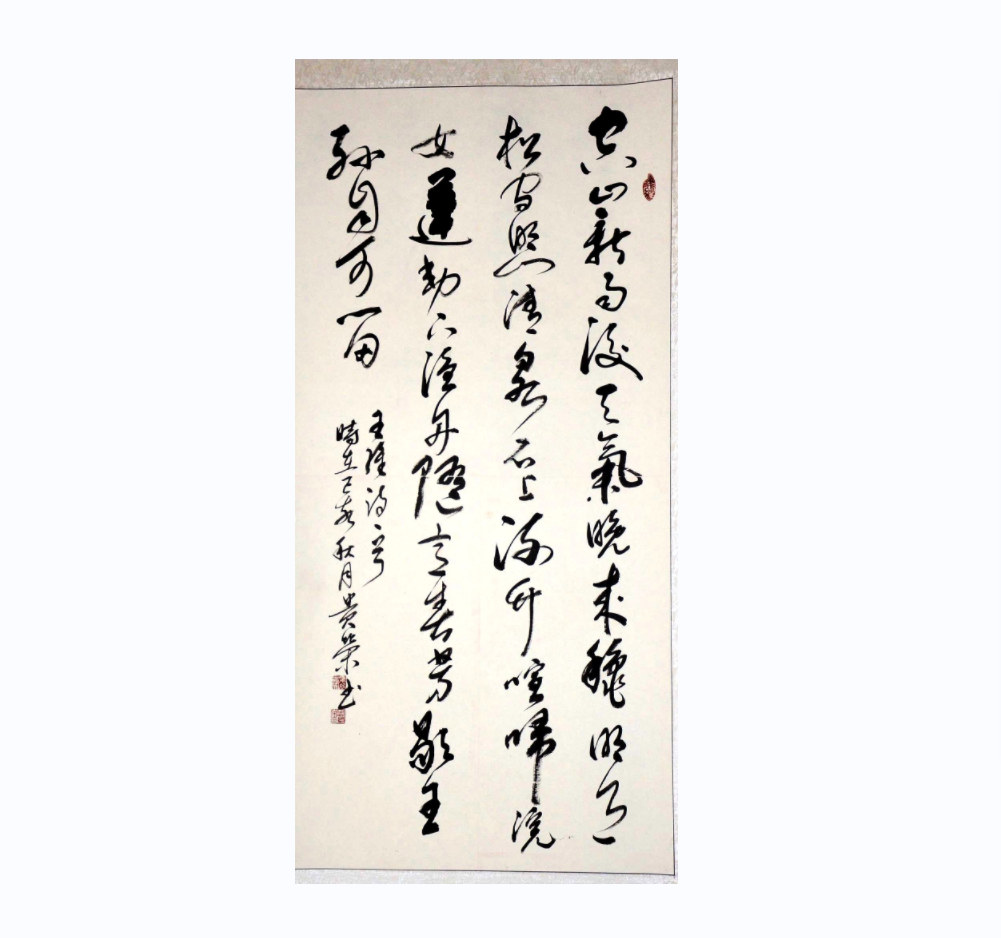 空山新雨後天氣晚来穐明月
松间照清泉石上流竹喧歸浣
女蓮動下漁舟随意春芳歇王
孫自可留
王維詩一首
時在己亥秋月貴榮书